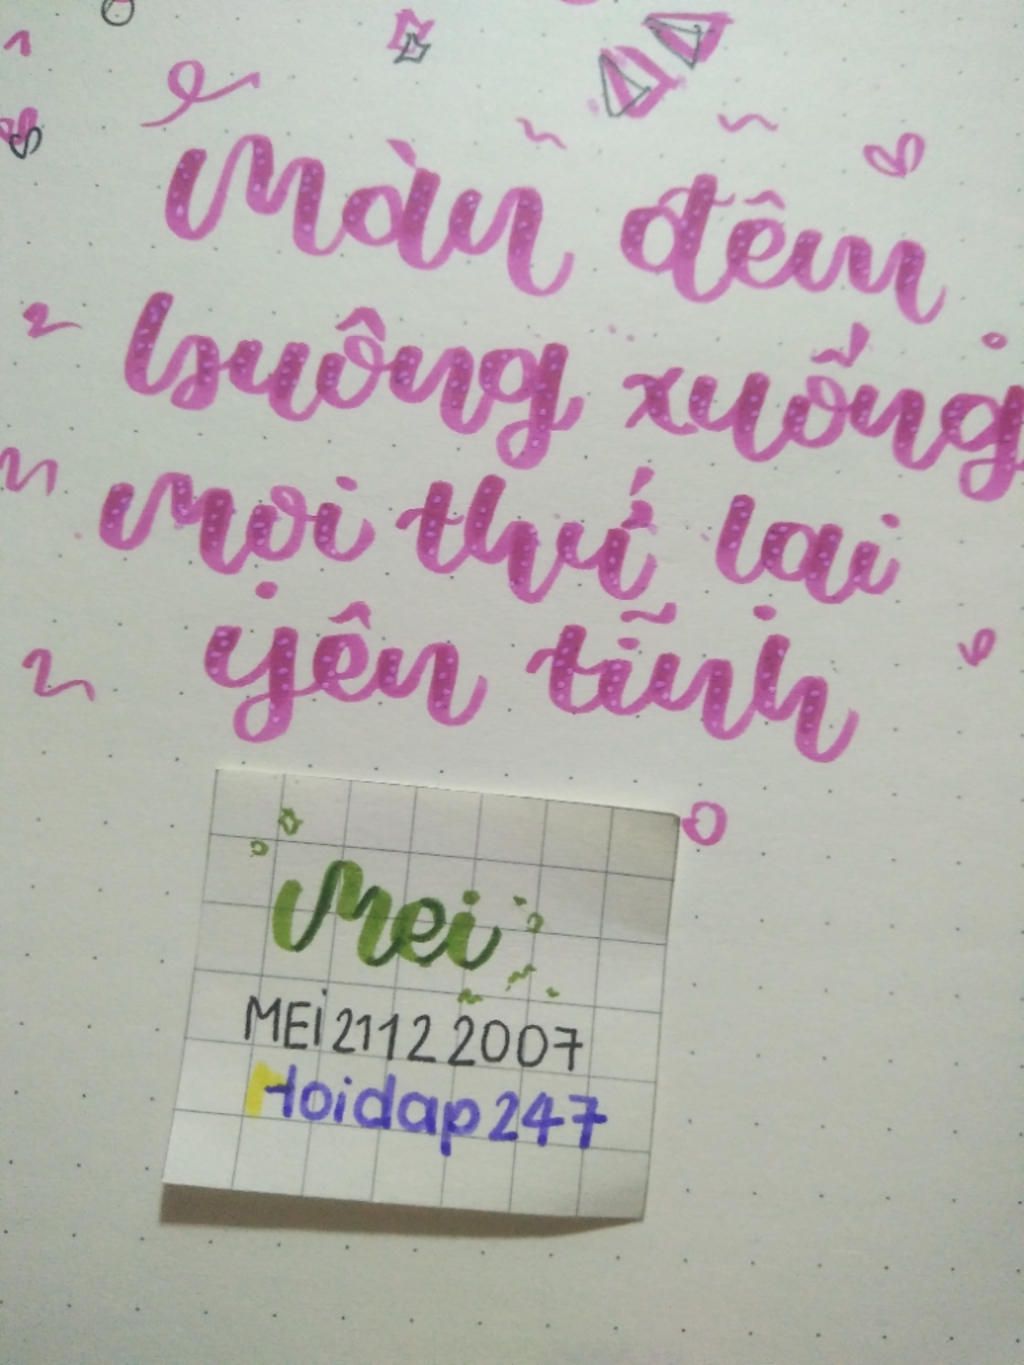 Màn đêm
buông xuống
mọi thứ lại
yên tĩnh
Mei
MEi 2112 2007
Hoidap247